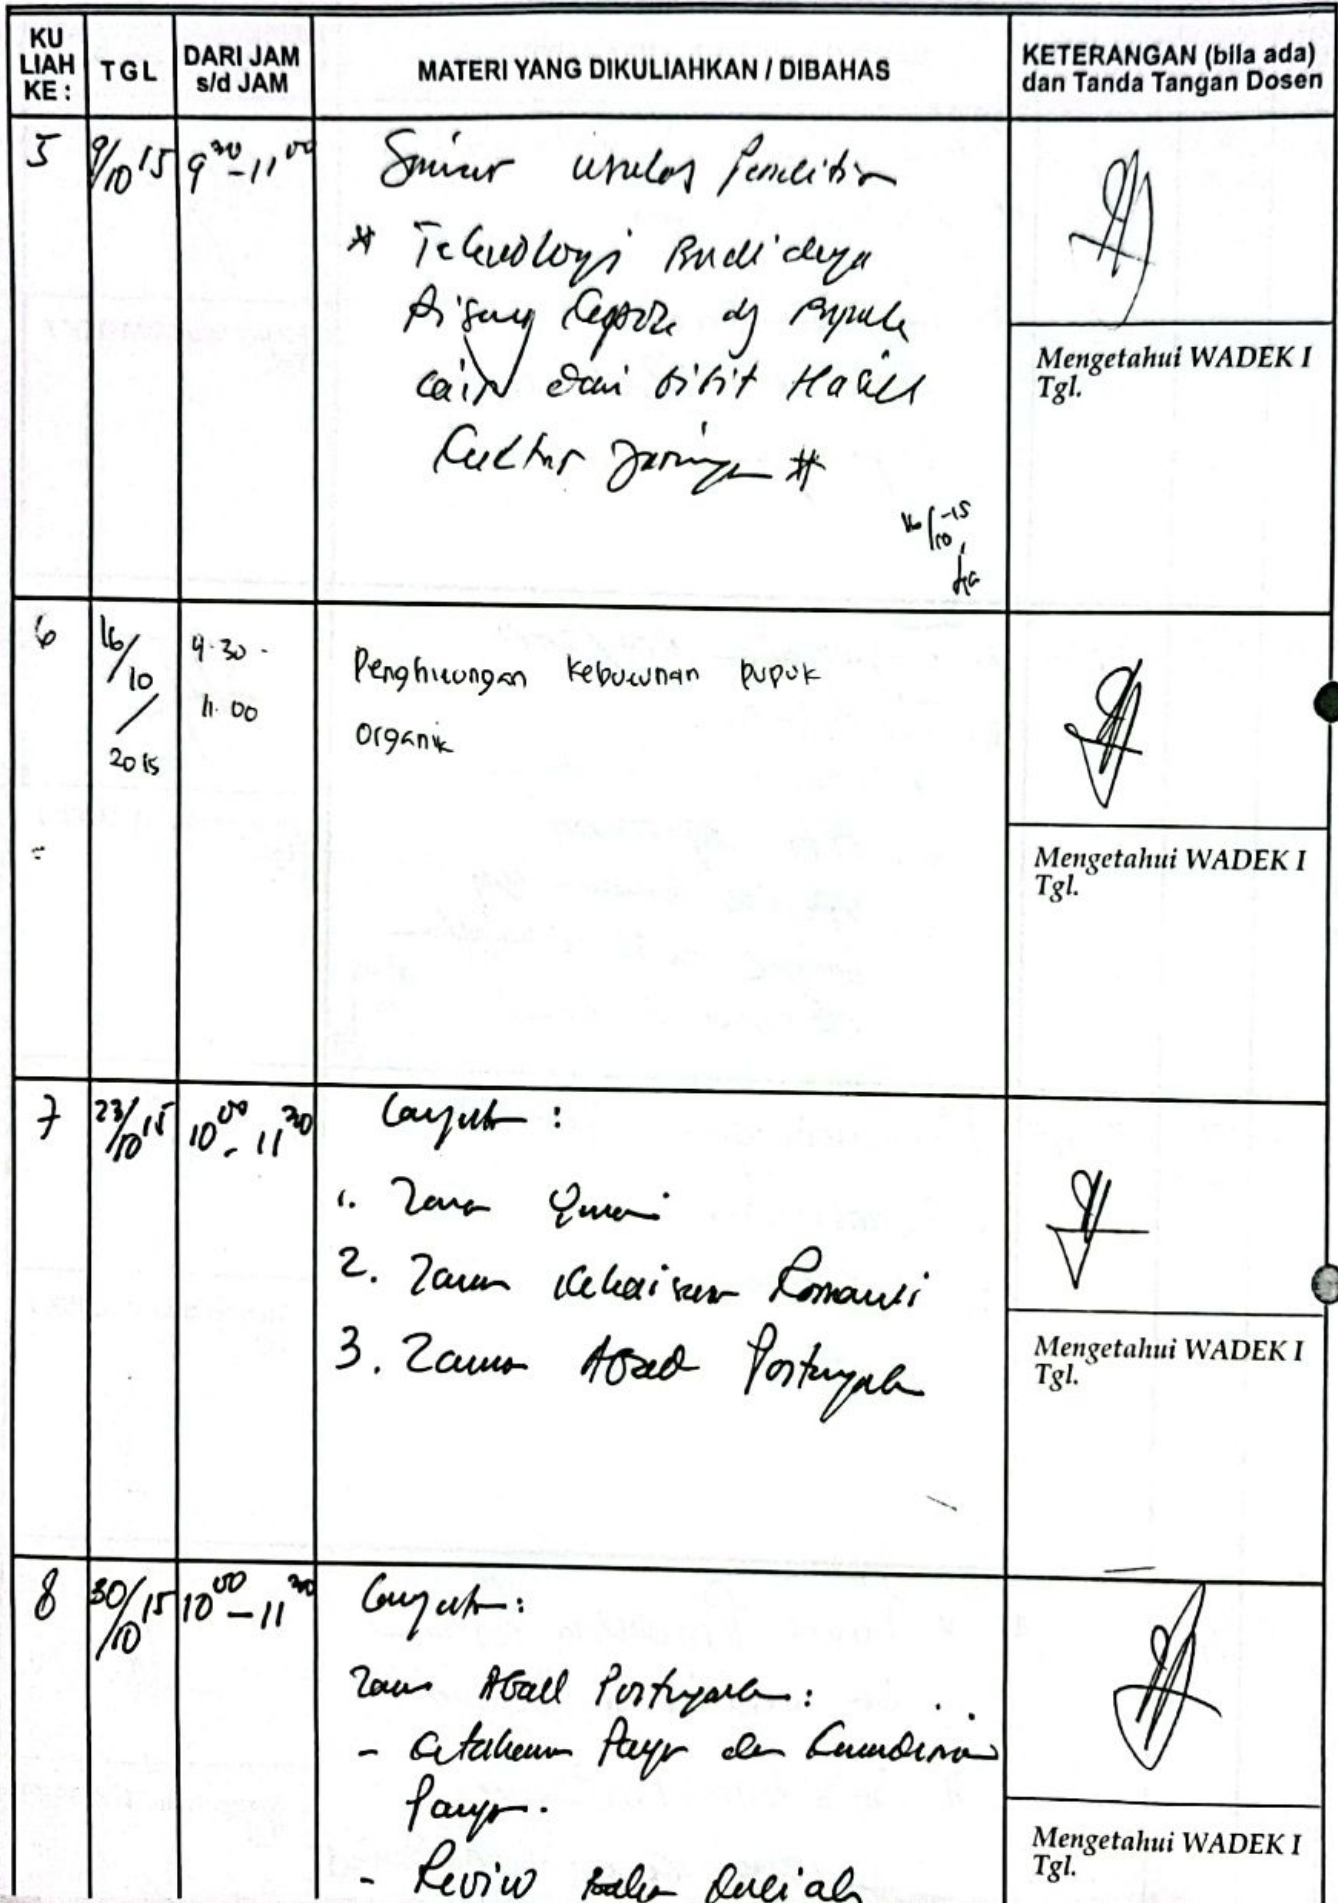 KU LIAH KE :
TGL
DARI JAM s/d JAM
MATERI YANG DIKULIAHKAN / DIBAHAS
KETERANGAN (bila ada) dan Tanda Tangan Dosen
5
9/10 15
9 30 - 11 00
usulan Penelitian
* Teknologi Budidaya
Pisang Cepok dg Pupuk
Cair dari Bibit Hasil
Kultur Jaringan *
16/10 -15
Mengetahui WADEK I
Tgl.
6
16/10/2015
9.30 - 11.00
Penghitungan Kebutuhan pupuk
organik
Mengetahui WADEK I
Tgl.
7
23/10 15
10 00 - 11 30
Lanjutan :
1. Zaman
2. Zaman Romawi
3. Zaman Abad Pertengahan
Mengetahui WADEK I
Tgl.
8
30/10 15
10 00 - 11 30
Lanjutan :
Zaman Abad Pertengahan :
-
- Review kuliah
Mengetahui WADEK I
Tgl.